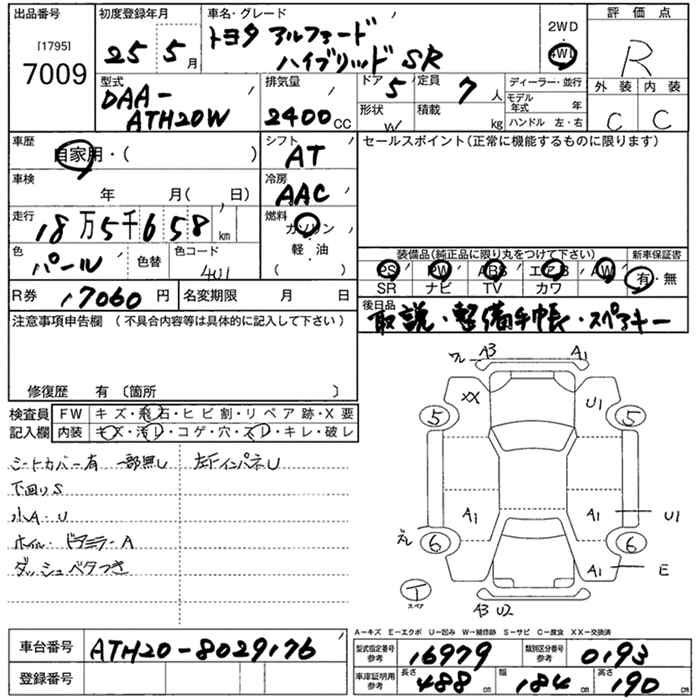 出品番号 [1795] 7009
初度登録年月 25 5月
車名・グレード トヨタ アルファード ハイブリッド SR
2WD・4WD
評価点 R
型式 DAA-ATH20W
排気量 2400CC
ドア 5
定員 7人
形状 W
積載 kg
ディーラー・並行
モデル年式 年
ハンドル 左・右
外装 C 内装 C
車歴 自家用・( )
シフト AT
セールスポイント(正常に機能するものに限ります)
車検 年 月( 日)
冷房 AAC
走行 18万5千658km
燃料 ガソリン 軽・油 ( )
色 パール
色替
色コード 4U1
装備品(純正品に限り丸をつけて下さい)
新車保証書
PS PW ABS エアB AW
SR ナビ TV カワ
有・無
R券 17060円
名変期限 月 日
後日品 取説・整備手帳・スペアキー
注意事項申告欄 (不具合内容等は具体的に記入して下さい)
修復歴 有 〔箇所 〕
検査員記入欄
FW キズ・飛石・ヒビ割・リペア跡・X要
内装 キズ・汚レ・コゲ・穴・スレ・キレ・破レ
シートカバー有 一部無し 左下インパネU
下回りS
小A・U
ホイル・ドアミラーA
ダッシュベタつき
ワレ A3 A1
XX U1
5 5
A1 A1 U1
ズレ 6 6
A1 E
T スペア
A3 U2
A-キズ E-エクボ U-凹み W-補修跡 S-サビ C-腐食 XX-交換済
車台番号 ATH20-8029176
登録番号
型式指定番号 参考 16979
類別区分番号 参考 0193
車庫証明用 参考 長さ 488cm 幅 184cm 高さ 190cm